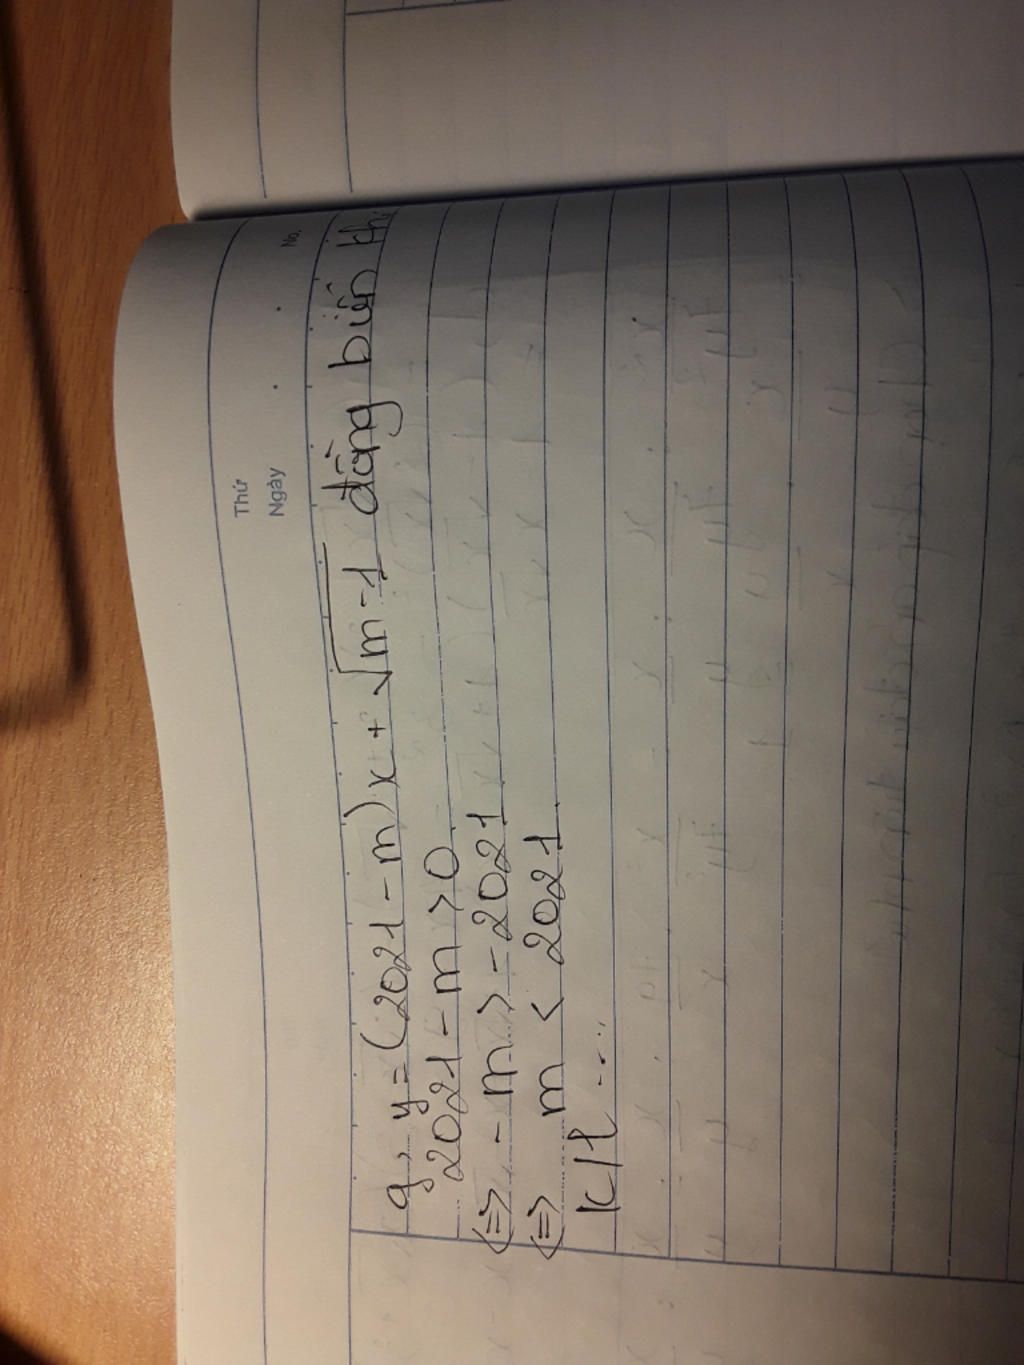 Thứ
Ngày
No.
g, y = (2021 - m)x + √m-1 đồng biến khi
2021 - m > 0
<=> - m > - 2021
<=> m < 2021
K/l ....